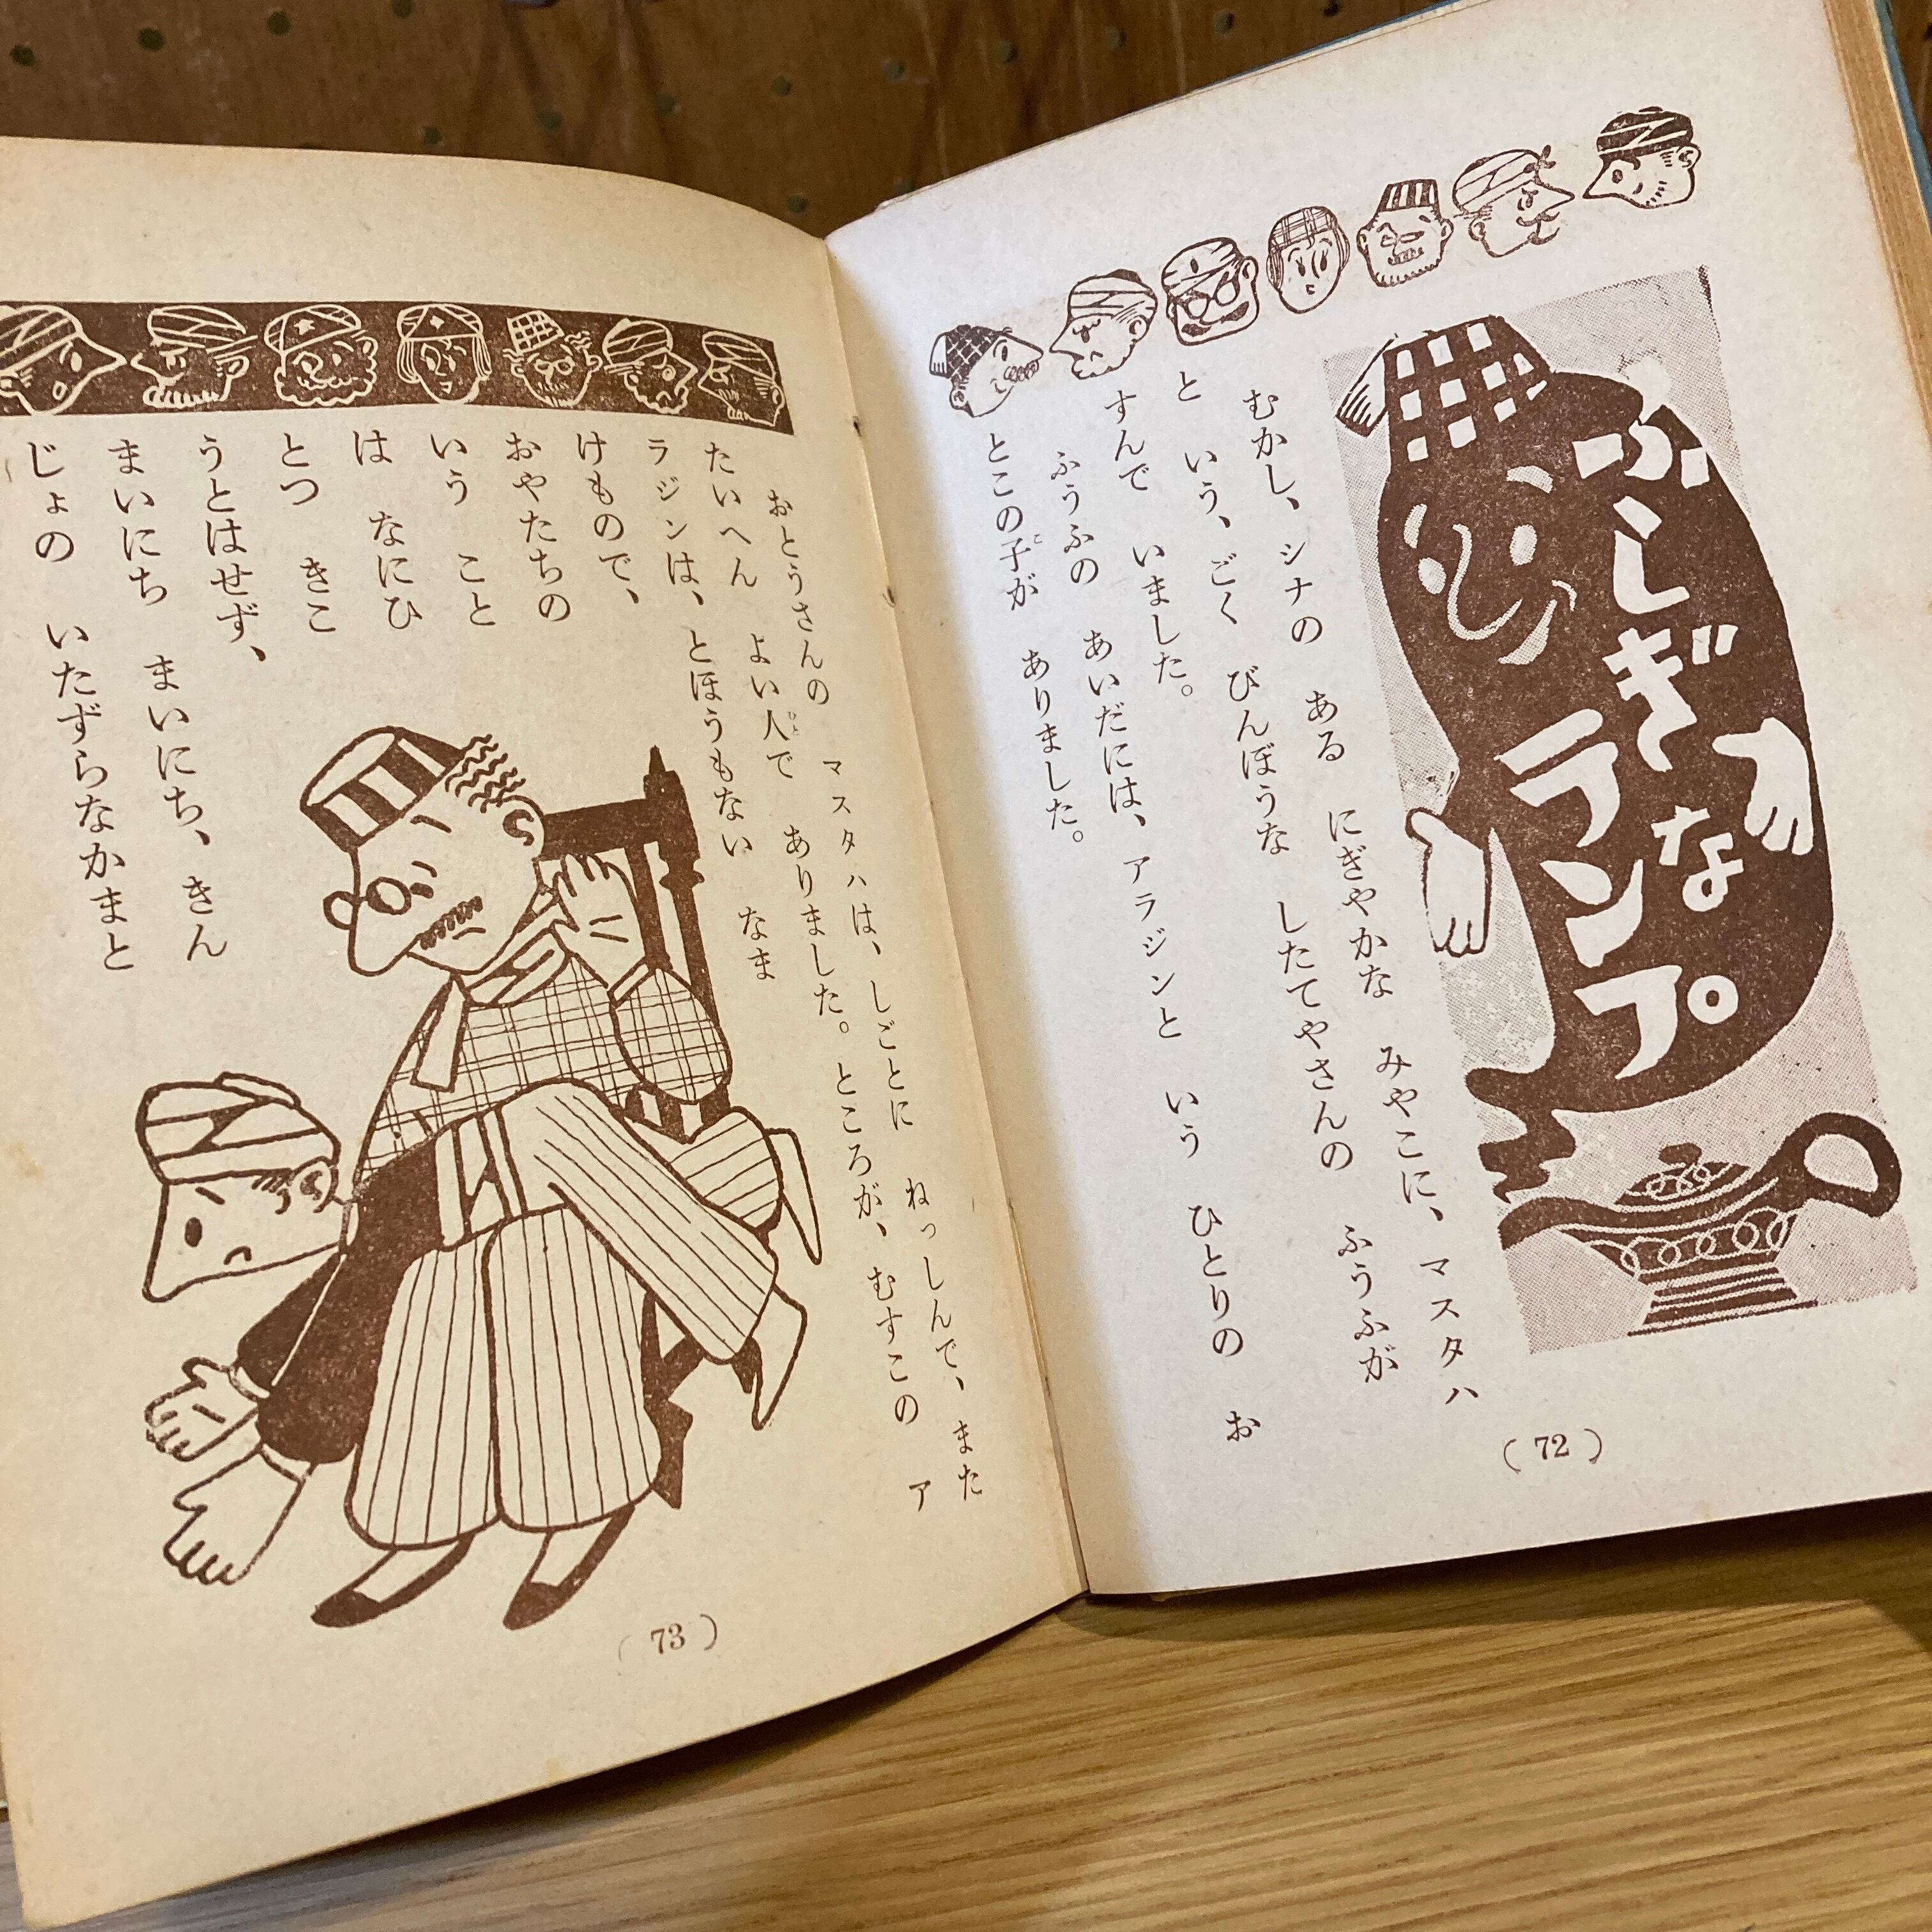 ふしぎな
ランプ
むかし、シナの ある にぎやかな みやこに、マスタハ
と いう、ごく びんぼうな したてやさんの ふうふが
すんで いました。
ふうふの あいだには、アラジンと いう ひとりの お
とこの子が ありました。
こ
(72)
おとうさんの マスタハは、しごとに ねっしんで、また
たいへん よい人で ありました。ところが、むすこの ア
ひと
ラジンは、とほうもない なま
けもので、
おやたちの
いう こと
は なにひ
とつ きこ
うとはせず、
まいにち まいにち、きん
じょの いたずらなかまと
(73)